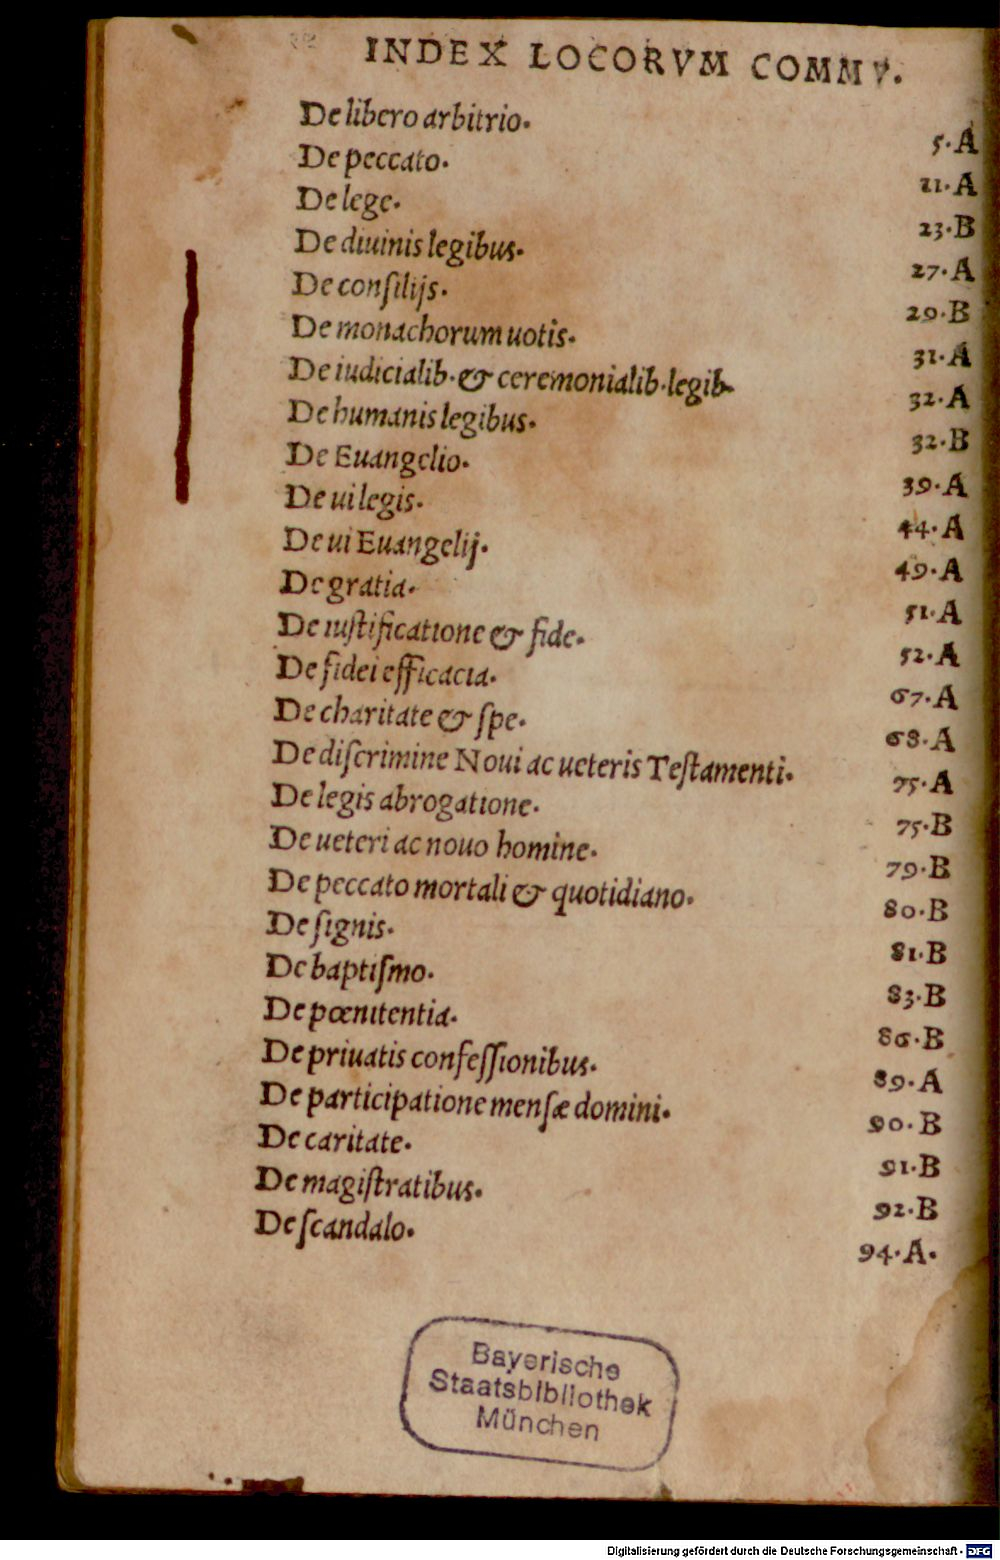 INDEX LOCORVM COMMV.
De libero arbitrio. 5.A
De peccato. 11.A
De lege. 23.B
De diuinis legibus. 27.A
De conſilijs. 29.B
De monachorum uotis. 31.A
De iudicialib. & ceremonialib. legib. 32.A
De humanis legibus. 32.B
De Euangelio. 39.A
De ui legis. 44.A
De ui Euangelij. 49.A
De gratia. 51.A
De iuſtificatione & fide. 52.A
De fidei efficacia. 67.A
De charitate & ſpe. 68.A
De diſcrimine Noui ac ueteris Teſtamenti. 75.A
De legis abrogatione. 75.B
De ueteri ac nouo homine. 79.B
De peccato mortali & quotidiano. 80.B
De ſignis. 81.B
De baptiſmo. 83.B
De pœnitentia. 86.B
De priuatis confeſſionibus. 89.A
De participatione menſæ domini. 90.B
De caritate. 91.B
De magiſtratibus. 92.B
De ſcandalo. 94.A.
Bayerische
Staatsbibliothek
München
Digitalisierung gefördert durch die Deutsche Forschungsgemeinschaft - DFG